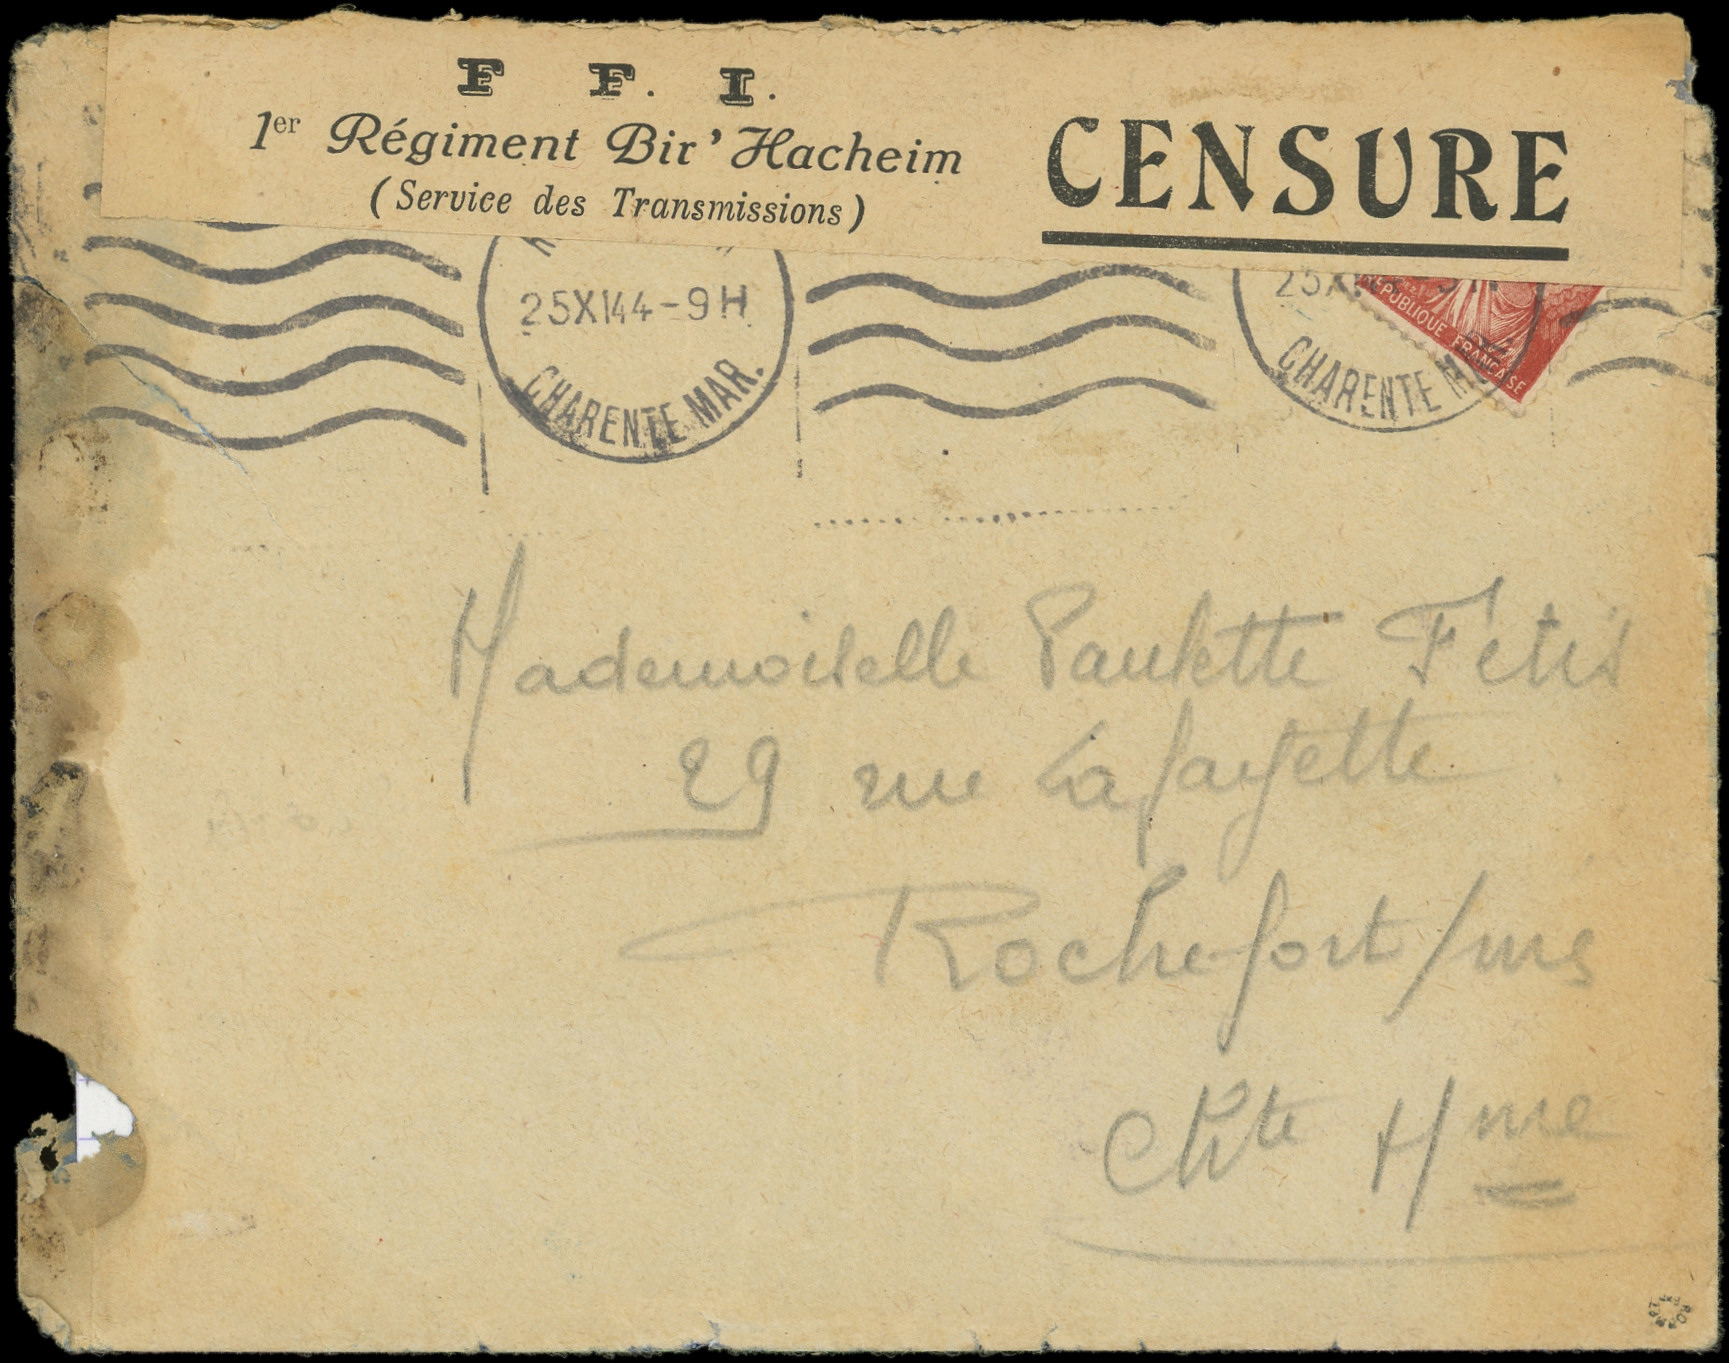 F F. I.
1er Régiment Bir' Hacheim
(Service des Transmissions)
CENSURE
25XI44-9H
CHARENTE MAR.
CHARENTE M
REPUBLIQUE FRANCAISE
Mademoiselle Paulette Fétis
29 rue Lafayette
Rochefort/mer
Chte Mme